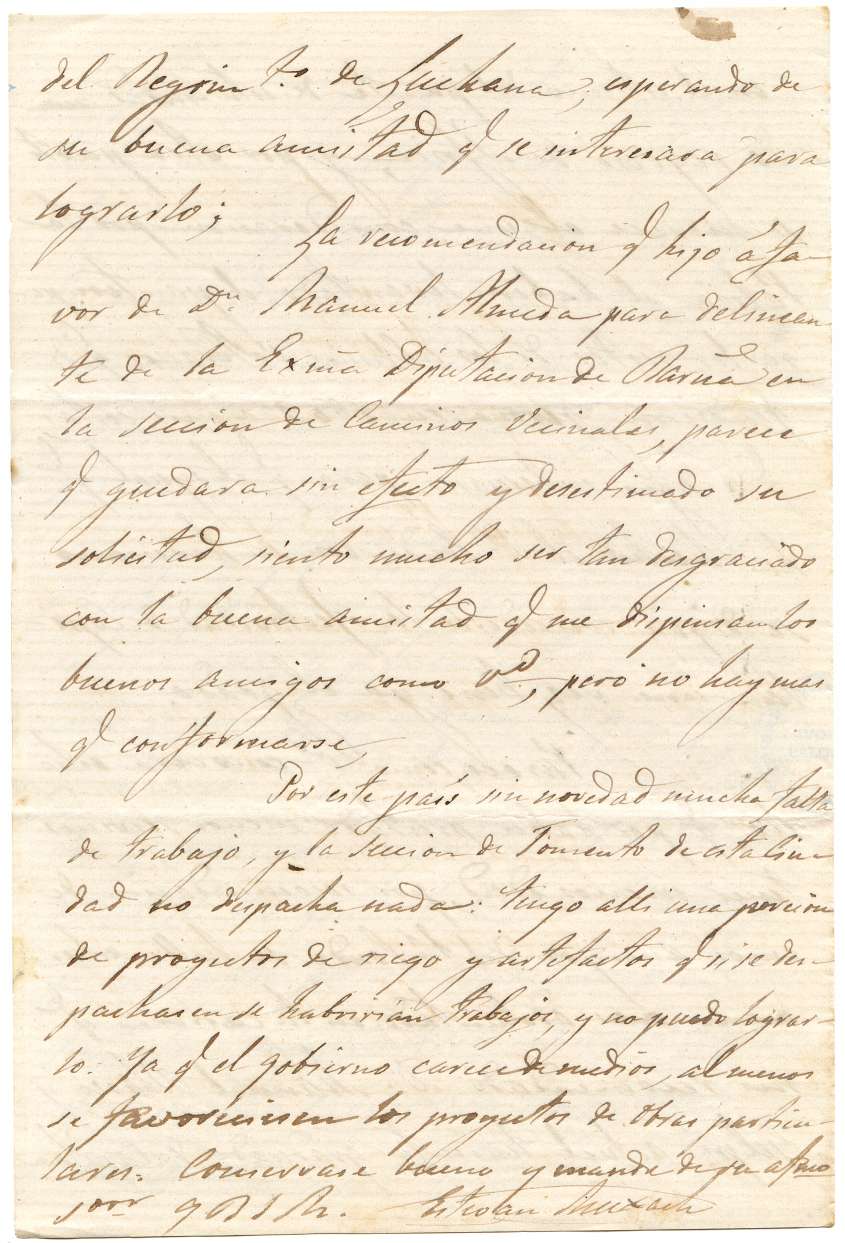 del Regim.to de Luchana, esperando de
su buena amistad q.e se interesara para
lograrlo;
La recomendacion q.e hizo á fa-
vor de D.n Manuel Almeda para delinean-
te de la Exma Diputacion de Barna en
la seccion de Caminos Vecinales, parece
q.e quedara sin efecto y desestimado su
solicitud, siento mucho ser tan desgraciado
con la buena amistad q.e me dispensan los
buenos amigos como Vd, pero no hay mas
q.e conformarse,
Por este país sin novedad mucha falta
de trabajo, y la seccion de Fomento de esta Ciu-
dad no despacha nada: tengo alli una porcion
de proyectos de riego y artefactos q.e si se des-
pachasen se habririan trabajos, y no puedo lograr-
lo. Ya q.e el gobierno carece de medios, al menos
se favoreciesen los proyectos de obras particu-
lares. Conservase bueno y mande de su afmo
s.or q B S M. Estevan